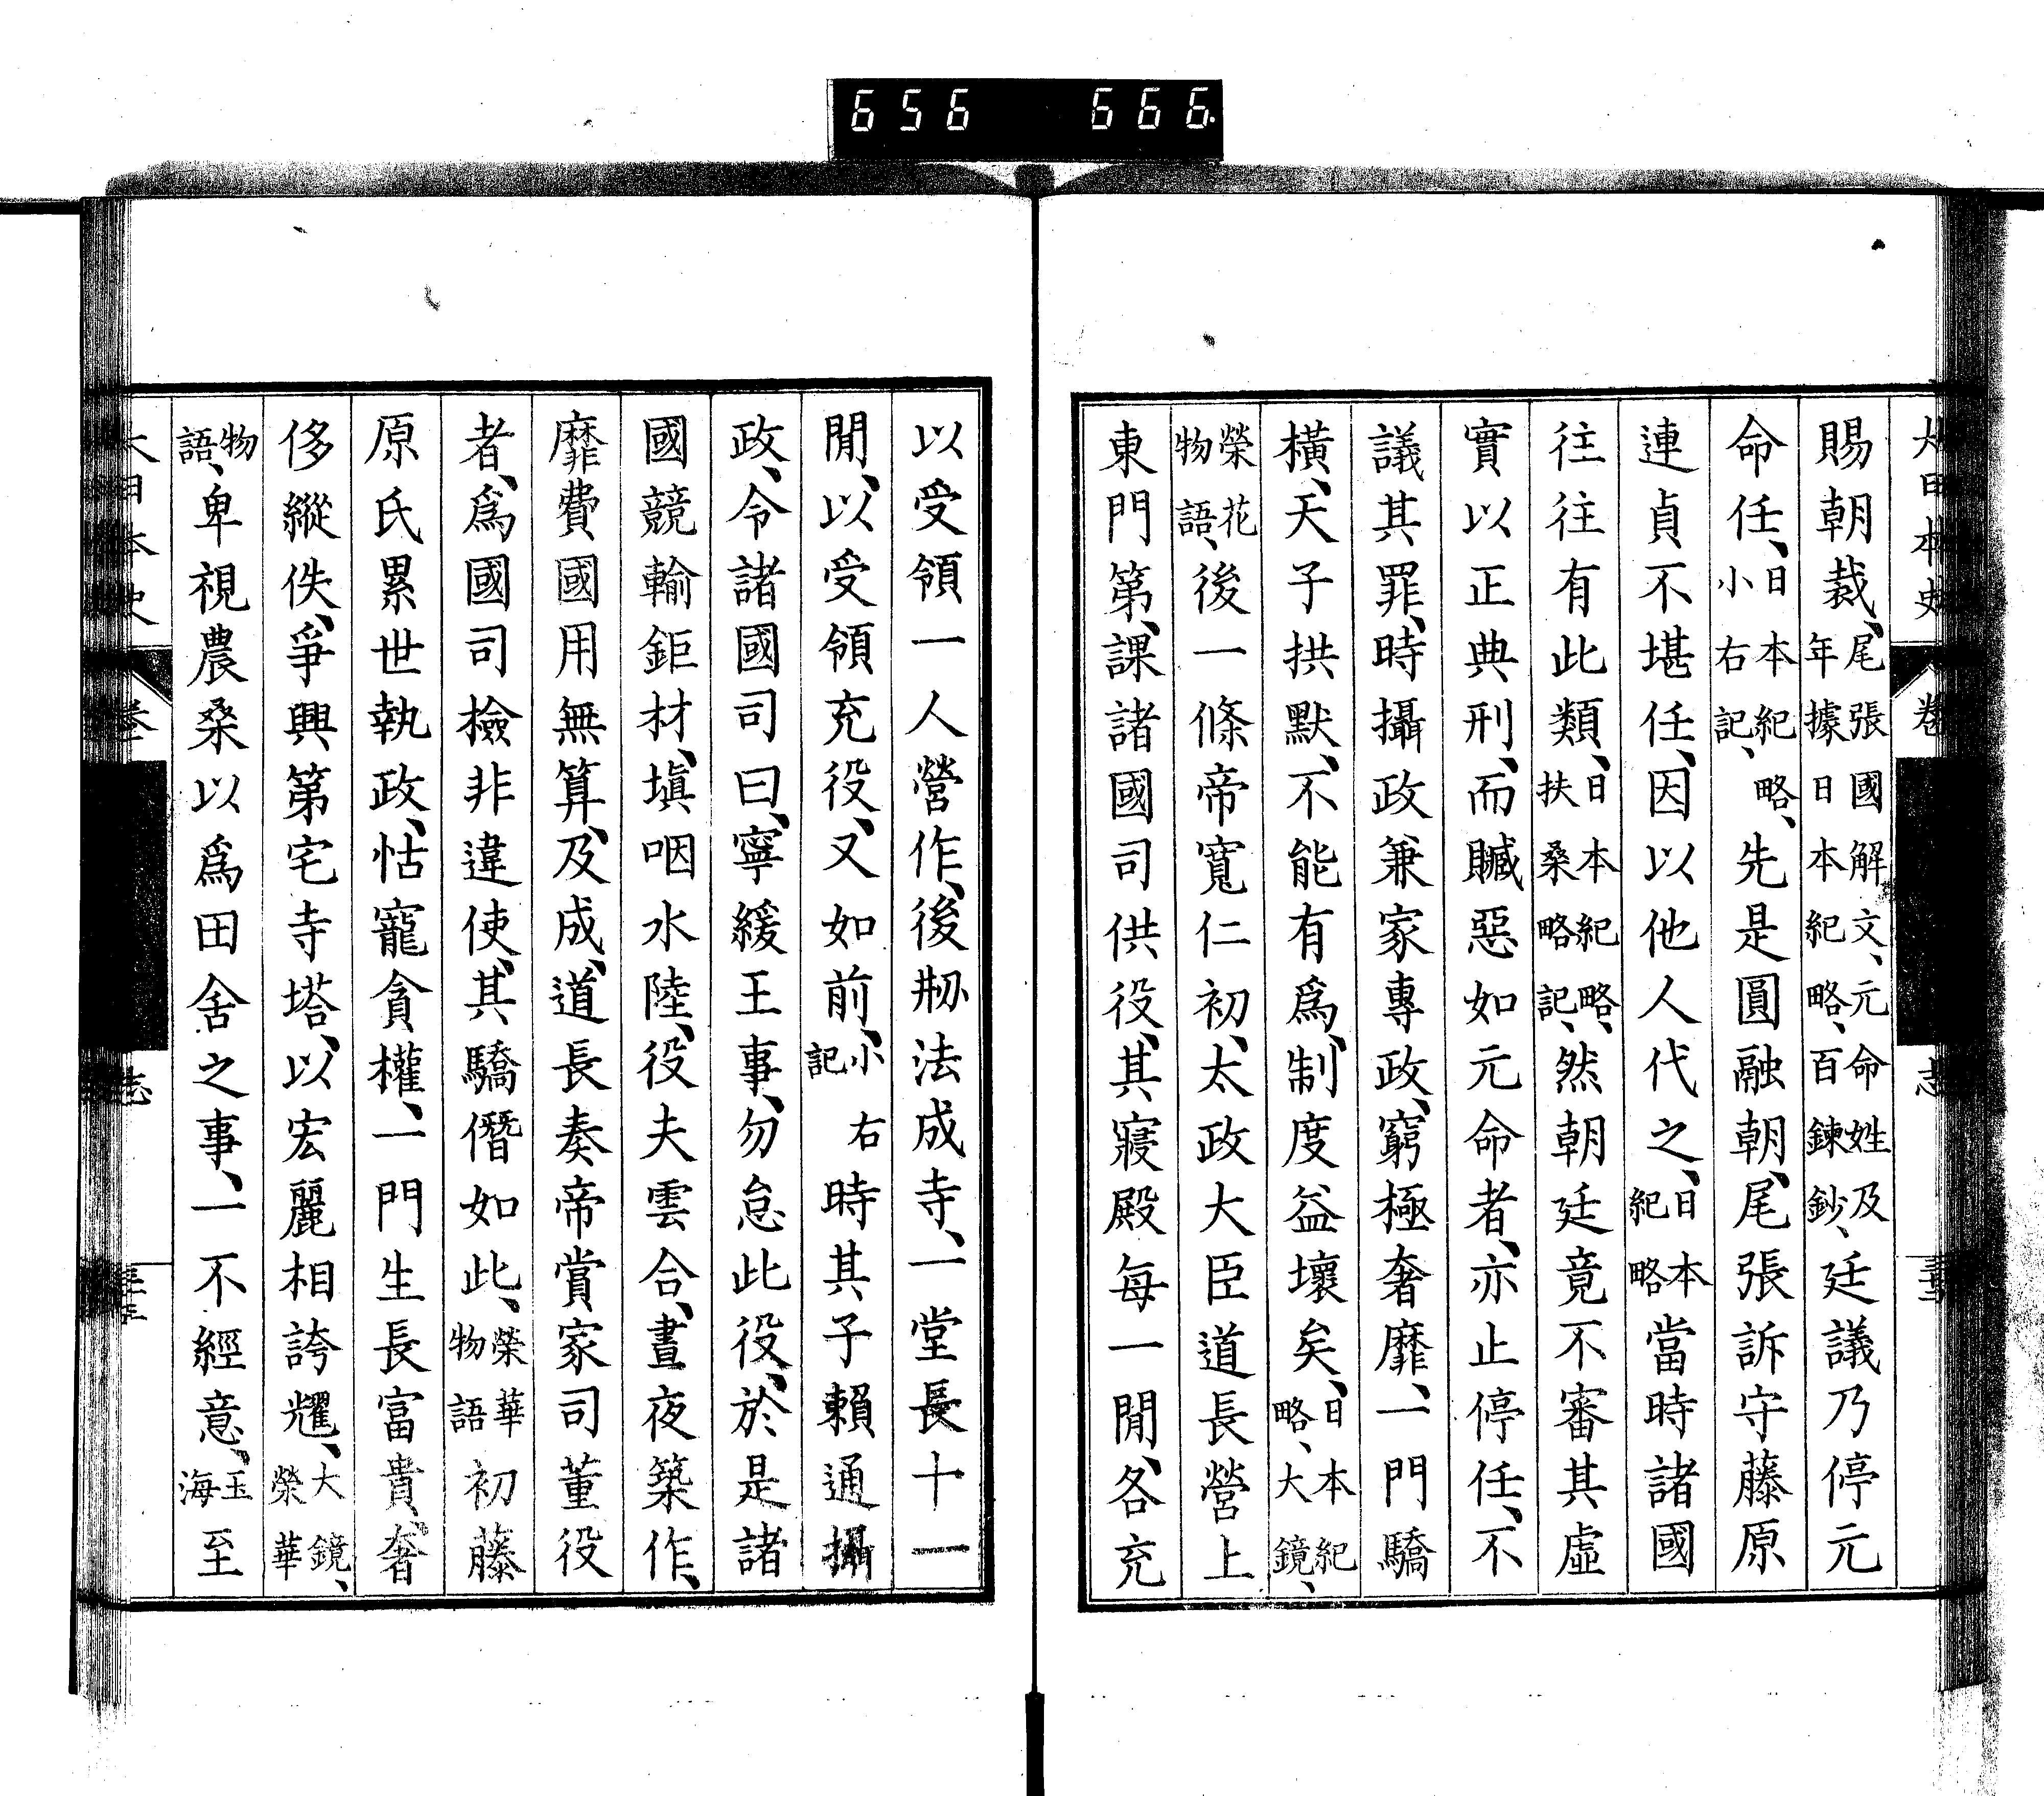 656 666
大日本史 卷 志
賜朝裁、尾張國解文、元命姓及年據日本紀略、百鍊鈔、廷議乃停元
命任、日本紀略、小右記、先是圓融朝、尾張訴守藤原
連貞不堪任、因以他人代之、日本紀略當時諸國
往往有此類、日本紀略、扶桑略記、然朝廷竟不審其虛
實以正典刑、而贓惡如元命者、亦止停任、不
議其罪、時攝政兼家專政、窮極奢靡、一門驕
橫、天子拱默、不能有爲、制度益壞矣、日本紀略、大鏡、
榮花物語、後一條帝寬仁初、太政大臣道長營上
東門第、課諸國司供役、其寢殿每一閒、各充
以受領一人營作、後刱法成寺、一堂長十一
閒、以受領充役、又如前、小右記時其子賴通攝
政、令諸國司曰、寧緩王事、勿怠此役、於是諸
國競輸鉅材、塡咽水陸、役夫雲合、晝夜築作、
靡費國用無算、及成、道長奏帝賞家司董役
者、爲國司檢非違使、其驕僭如此、榮華物語初藤
原氏累世執政、怙寵貪權、一門生長富貴、奢
侈縱佚、爭興第宅寺塔、以宏麗相誇耀、大鏡、榮華
物語、卑視農桑以爲田舍之事、一不經意、玉海至
大日本史 卷 志